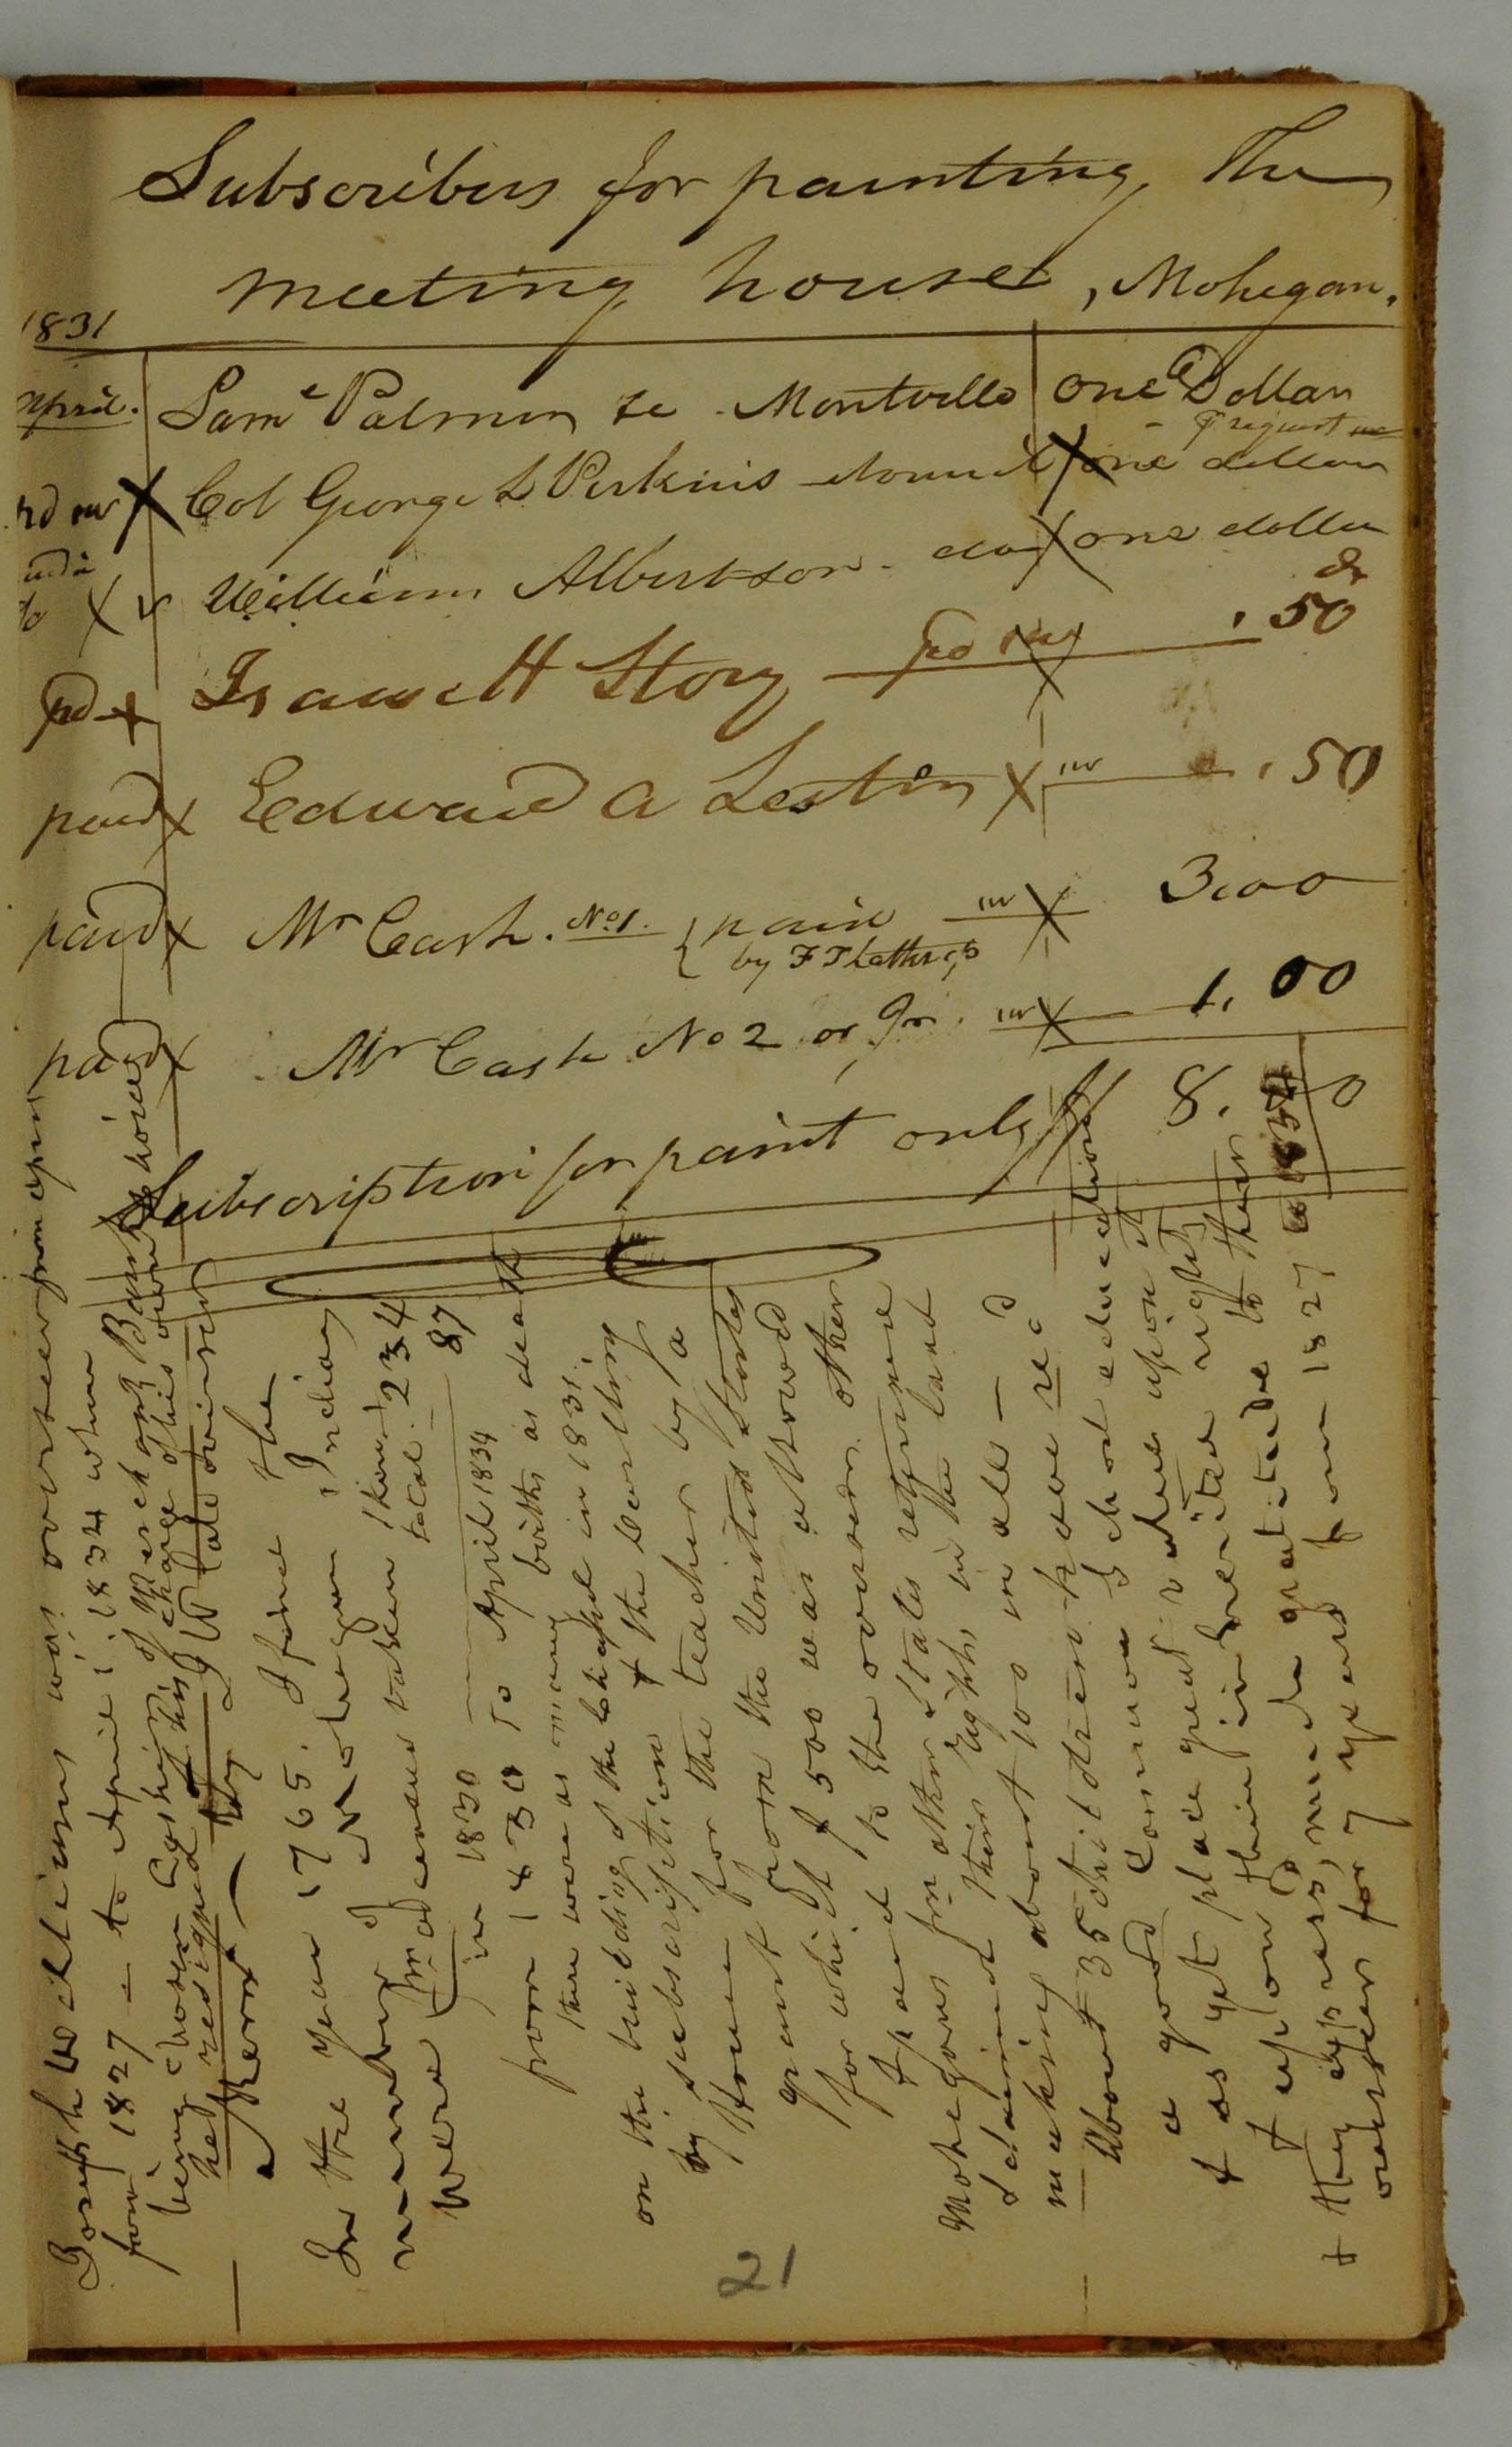 Subscribers for painting The
meeting house, Mohegan.
1831
April. Saml Palmer Montville one Dollar
request
X Col George L Perkins X one dollar
X William Albertson do X one dollar
pd X Isaac H Story pd X .50
paid X Edward A Lestin X .50
paid X Mr Cash. No 1. { paid X 3.00
by F T Lathrop
paid X Mr Cash No 2 or Jr. X 1.00
Subscription for paint only 8. 0
Joseph Williams was overseer from
from 1827 - to April 1834 when
being chosen Cashier of Merchants Bank
he resigned charge of his
by J W
In the year 1765. I find the
number of Mohegan Indians
were { census taken then total. 234
in 1830 87
from 1830 to April 1834
there were as many births as death
on the building of the Chapel in 1831.
by subscription & the
House for the teacher by a
grant from the United States
for which $500 was allowed
& paid to the overseer. other
Mohegans from other States returned
& claimed their rights in the land
making about 100 in all —
About 35 children have recd
a good Common School education
& as yet place great value upon it
& upon their inherited rights
& they express much gratitude to their
overseer for 7 years from 1827 to 1834
21